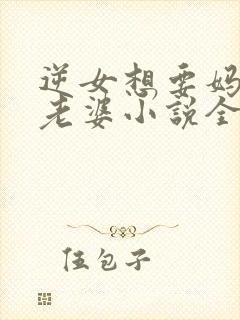 逆女想要妈
老婆小说全
伍包子